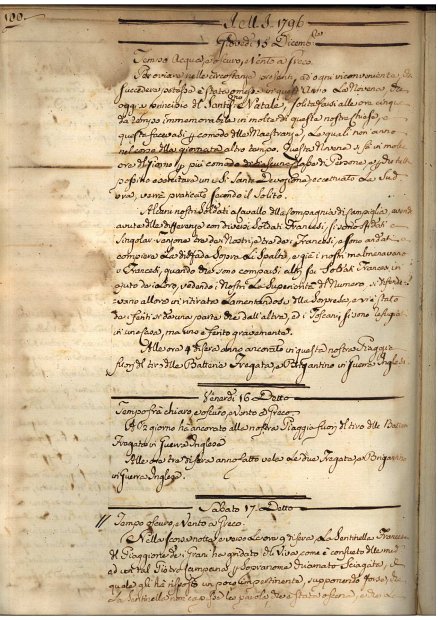 100.
A.M.S. 1796
Giovedì 15 Dicembre
Tempo Acqua, e oscuro, e Vento a Greco
Per ovviare nelle circostanze presenti, ad ogni inconveniente, che
succeder potesse è stato in quest'Anno La Novena, da
oggi a principio del Santissimo Natale, solita farsi alle ore cinque
da tempo immemorabile in molte di queste nostre Chiese, e
questa facevasi comodo delle Maestranze, le quali non anno
nel corso della giornata altro tempo.
ore di Giorno più comodo di Persone
Devozione, eccettuato La
sera, verrà praticato secondo il Solito.
Alcuni nostri Soldati a Cavallo della Compagnia di Campiglia, avendo
avute delle differenze con diversi Soldati Francesi, si sono sfidati a
Singolar tenzone tra dei Nostri, e tra dei Francesi, e sono andati a
compiere La disfida sopra Li Spalti, e già i nostri malmenavano
i Francesi, quando sono comparsi altri Soldati Francesi in
ajuto dei Loro, vedendo i Nostri La Superiorità di Numero, si difende
vano allora in ritirata Lamentandosi della Sorpresa, e vi è stato
dei feriti e da una parte e dall'altra, e i Toscani si sono refugiati
in una Casa, ma uno è ferito gravemente.
Alle ore 4 di sera anno ancorato in questa nostra Piaggia
fuori del tiro delle Batterie Fregata, e Brigantino in Guerra Inglesi
Venerdì 16. Detto
Tempo frà chiaro, e oscuro, e Vento a Greco
A giorno hà ancorato alla nostra Piaggia fuori del tiro delle Batterie
Fregata in Guerra Inglese
Alle ore tre di sera anno fatto vela Le due Fregate, e Brigantino
in Guerra Inglesi.
Sabato 17. Detto
Tempo oscuro, e Vento a Greco.
Nella scorsa notte verso Le ore 9 di sera La Sentinella Francese
del hà gridato chi Vive, come è consueto delle
ad un tal Pietro Campana Sopranome chiamato
quale gli hà risposto un poco impertinente, supponendo forse, che
La Sentinella non capisse Le parole